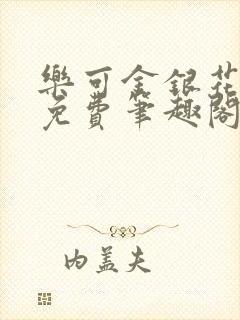 樂可金銀花
免費筆趣閣
内蓋夫